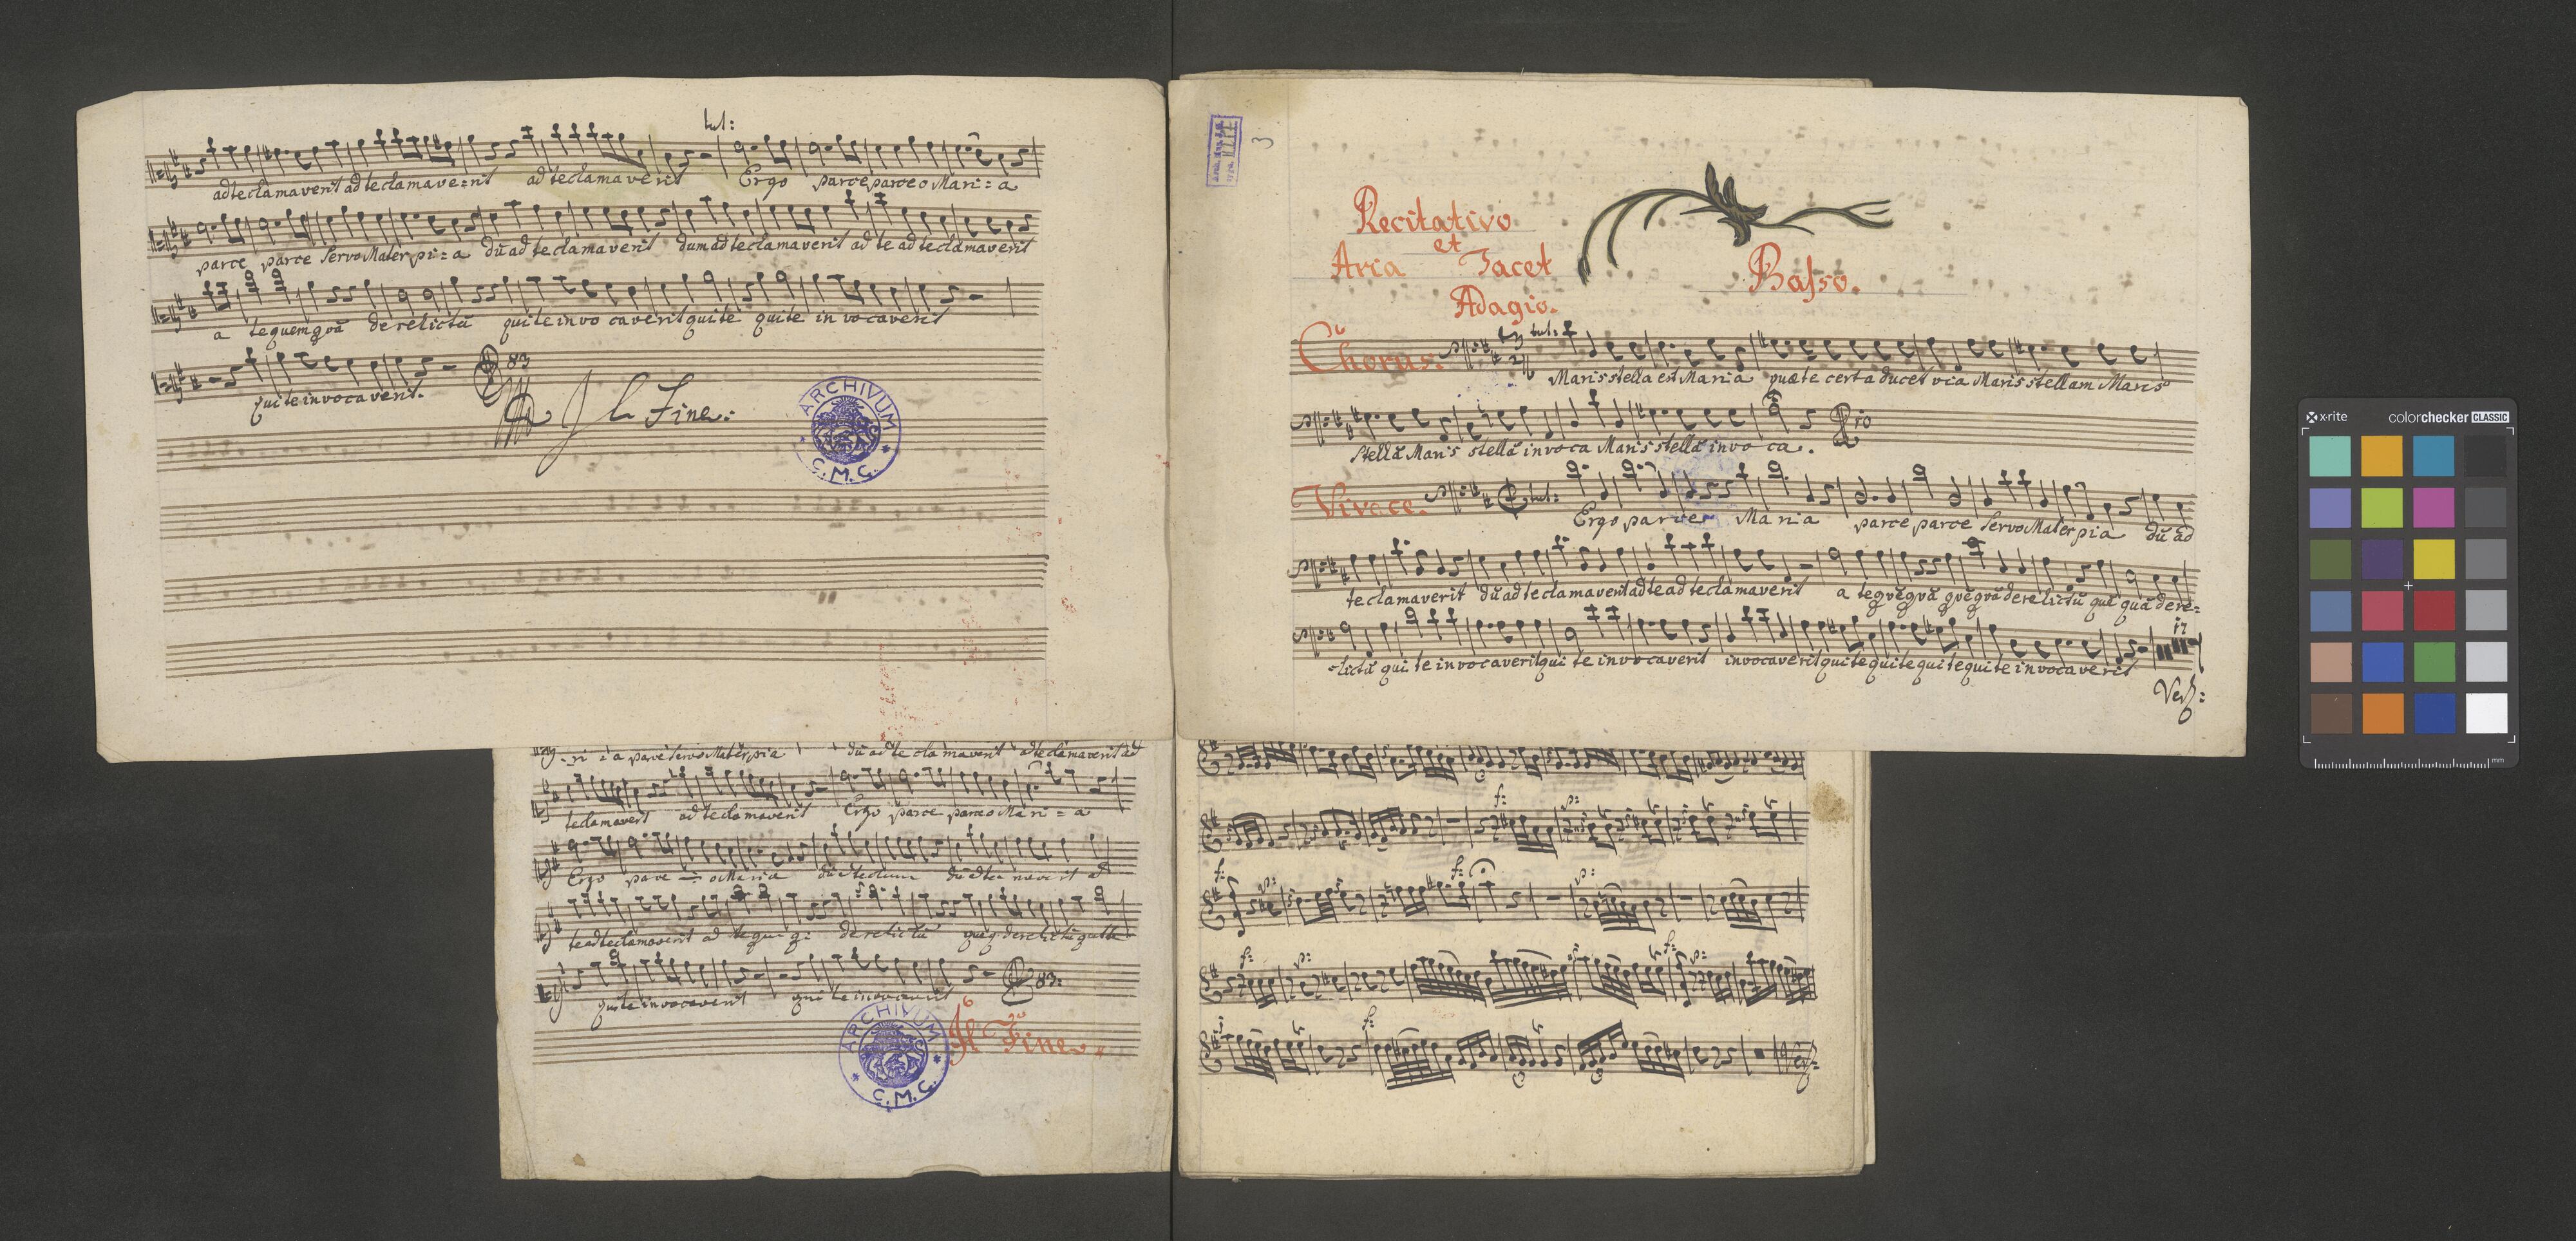 tut:
ad te clamaverit ad te clamave=rit ad te clamaverit Ergo parce parce o Mari=a
parce parce Servo Mater pi=a dũ ad te clamaverit dum ad te clamaverit ad te ad te clamaverit
a te quem qvã derelictũ qui te invocaverit qui te qui te invocaverit
83
qui te invocaverit.
Il Fine:
ARCHIVUM
C.M.C.
3
Recitativo
et
Aria Tacet
Basso.
Adagio.
Chorus. tut:
Maris stella est Maria quæ te certa ducet via Maris stellam Maris
10
stellã Maris stellã invoca Maris stellã invoca.
Vivace. tut:
Ergo parce Maria parce parce Servo Mater pia dũ ad
te clamaverit dũ ad te clamaverit ad te ad te clamaverit a te qvẽ qvã qvẽ qvã derelictũ quẽ quã dere=
17
=lictũ qui te invocaverit qui te invocaverit invocaverit qui te qui te qui te qui te invocaverit
Vers:
ri=a parce Servo Mater pia dũ ad te clamaverit ad te clamaverit ad
te clamaverit ad te clamaverit Ergo parce parce o Mari=a
Ergo parce o Maria
te ad te clamaverit ad te derelictũ
83:
qui te invocaverit qui te invocaverit
Il Fine
ARCHIVUM
C.M.C.
f: p:
f: p: f: p:
f: p: f: p:
f:
x-rite colorchecker CLASSIC
mm